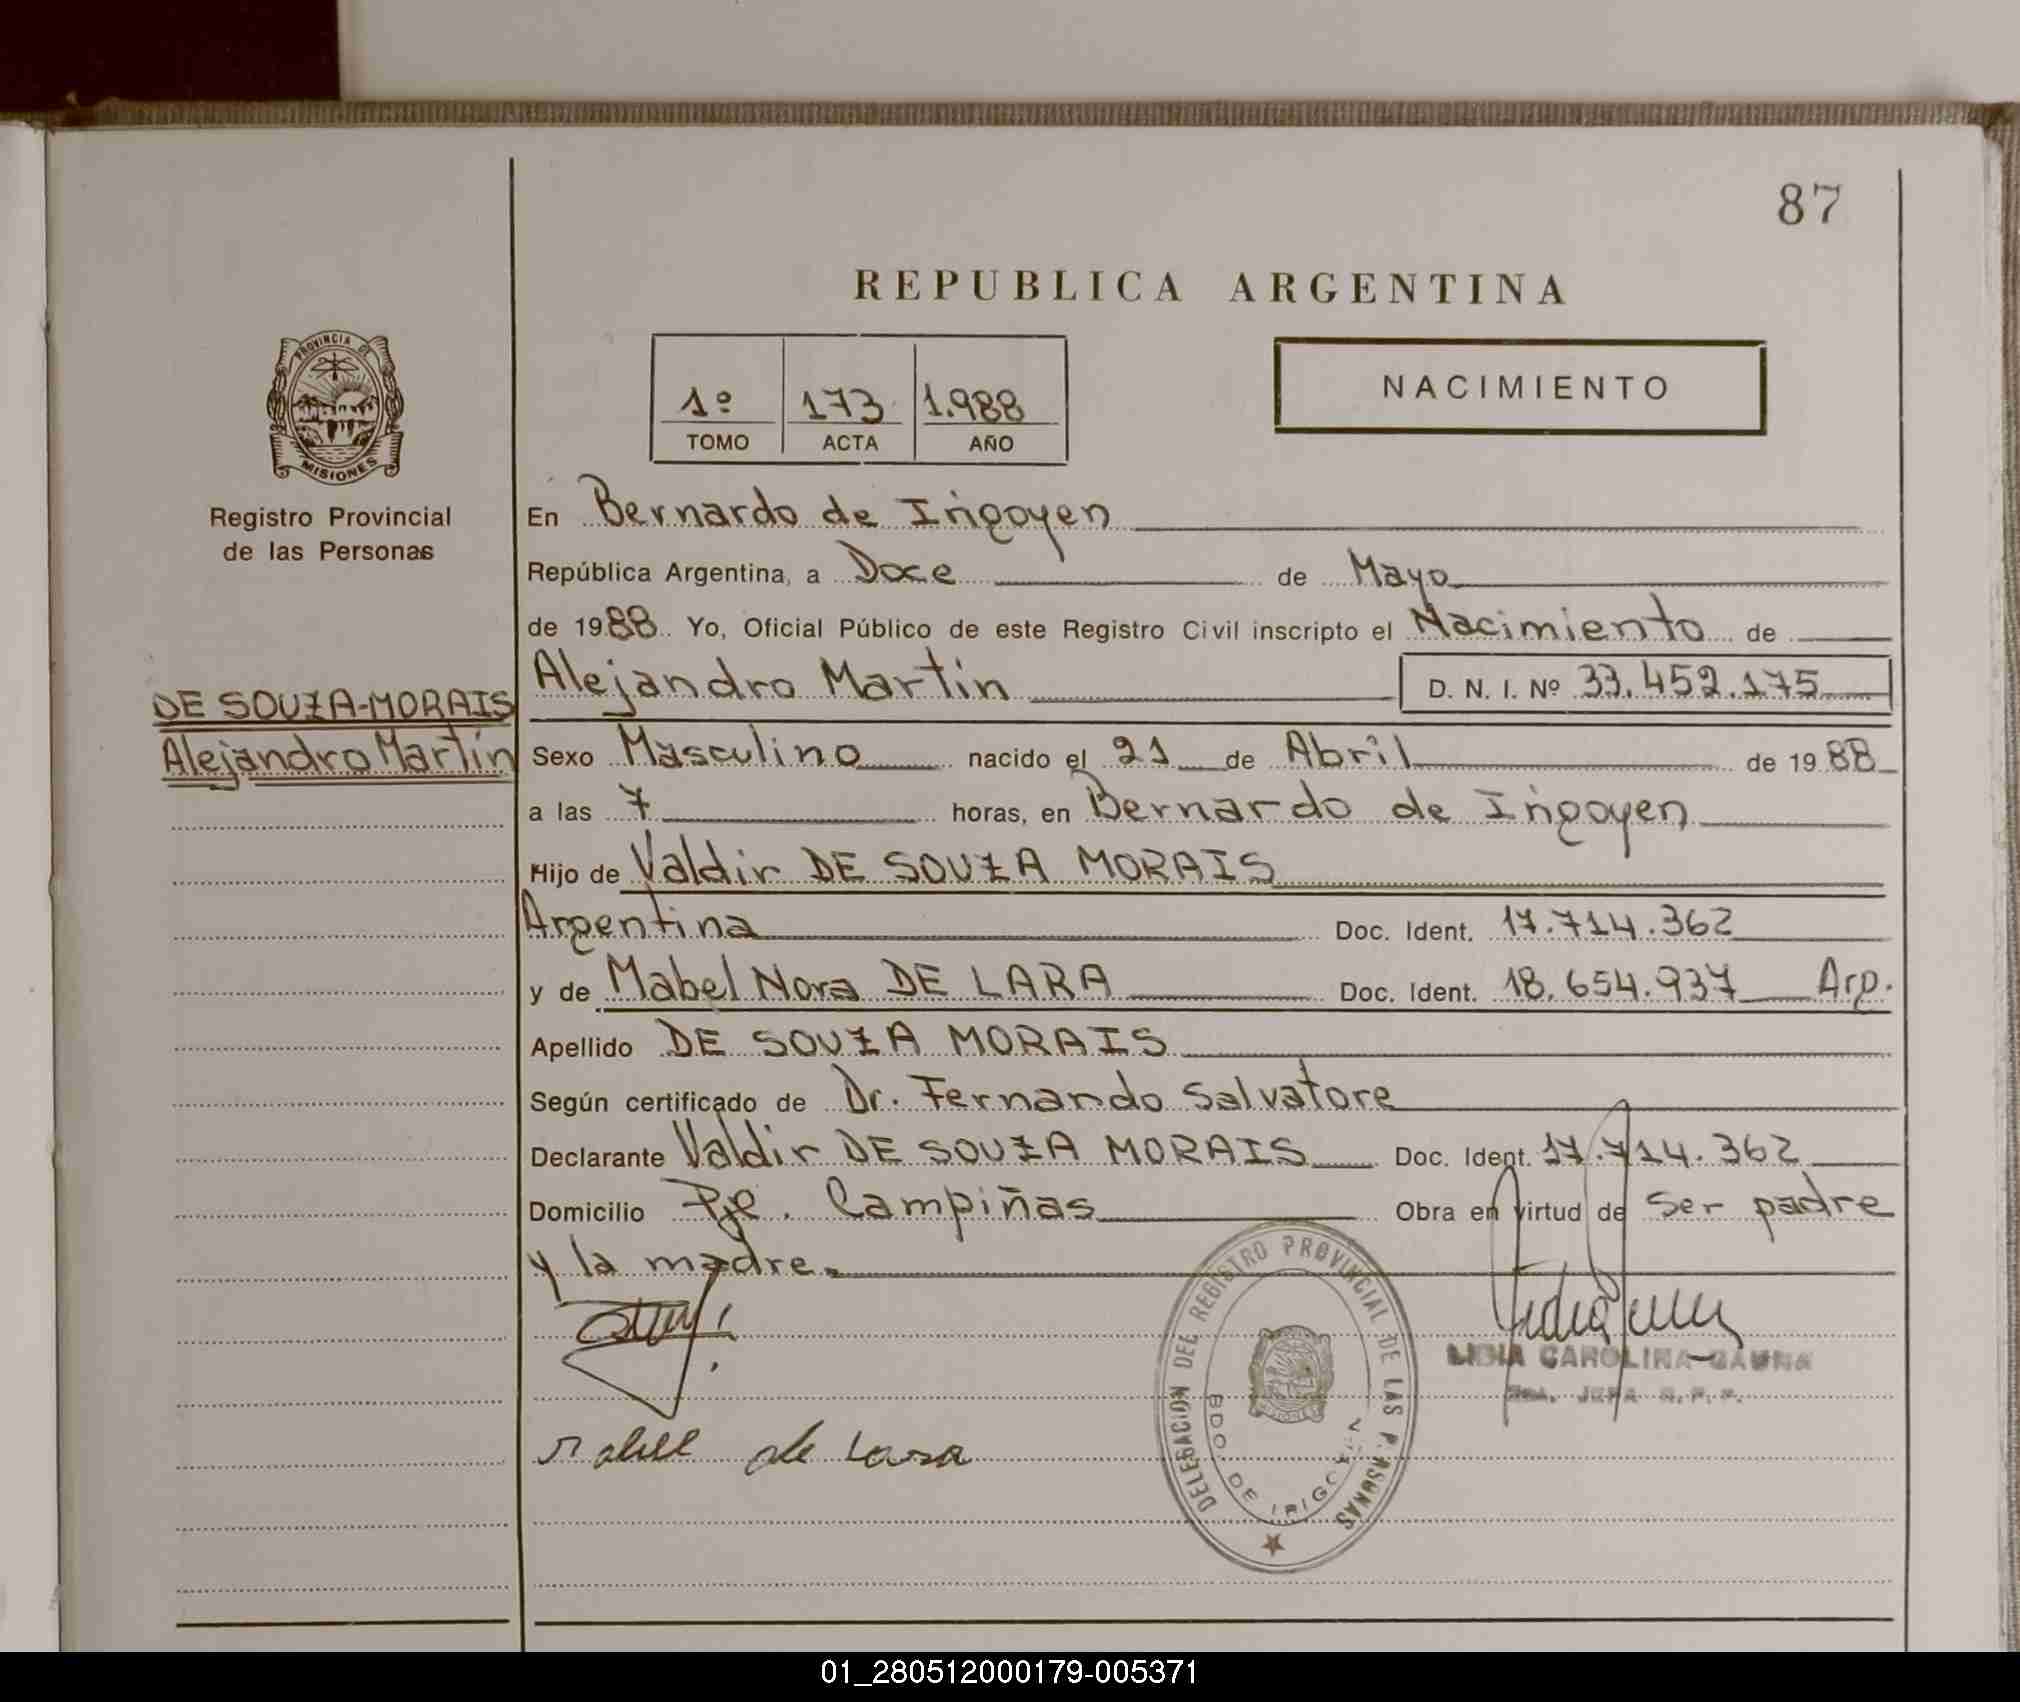 87
REPUBLICA ARGENTINA
PROVINCIA DE
MISIONES
Registro Provincial
de las Personas
1º 173 1.988
TOMO ACTA AÑO
NACIMIENTO
En Bernardo de Irigoyen
República Argentina, a Doce de Mayo
de 1988 Yo, Oficial Público de este Registro Civil inscripto el Nacimiento de
Alejandro Martín D. N. I. Nº 33.452.175
DE SOUZA-MORAIS
Alejandro Martín
Sexo Masculino nacido el 21 de Abril de 1988
a las 7 horas, en Bernardo de Irigoyen
Hijo de Valdir DE SOUZA MORAIS
Argentina Doc. Ident. 17.714.362
y de Mabel Nora DE LARA Doc. Ident. 18.654.937 Arg.
Apellido DE SOUZA MORAIS
Según certificado de Dr. Fernando Salvatore
Declarante Valdir DE SOUZA MORAIS Doc. Ident. 17.714.362
Domicilio Pje. Campiñas Obra en virtud de ser padre
y la madre.
LIDIA CAROLINA GAUNA
JEFA R.P.P.
DELEGACION DEL REGISTRO PROVINCIAL DE LAS PERSONAS
BDO. DE IRIGOYEN
de Lara
01_280512000179-005371